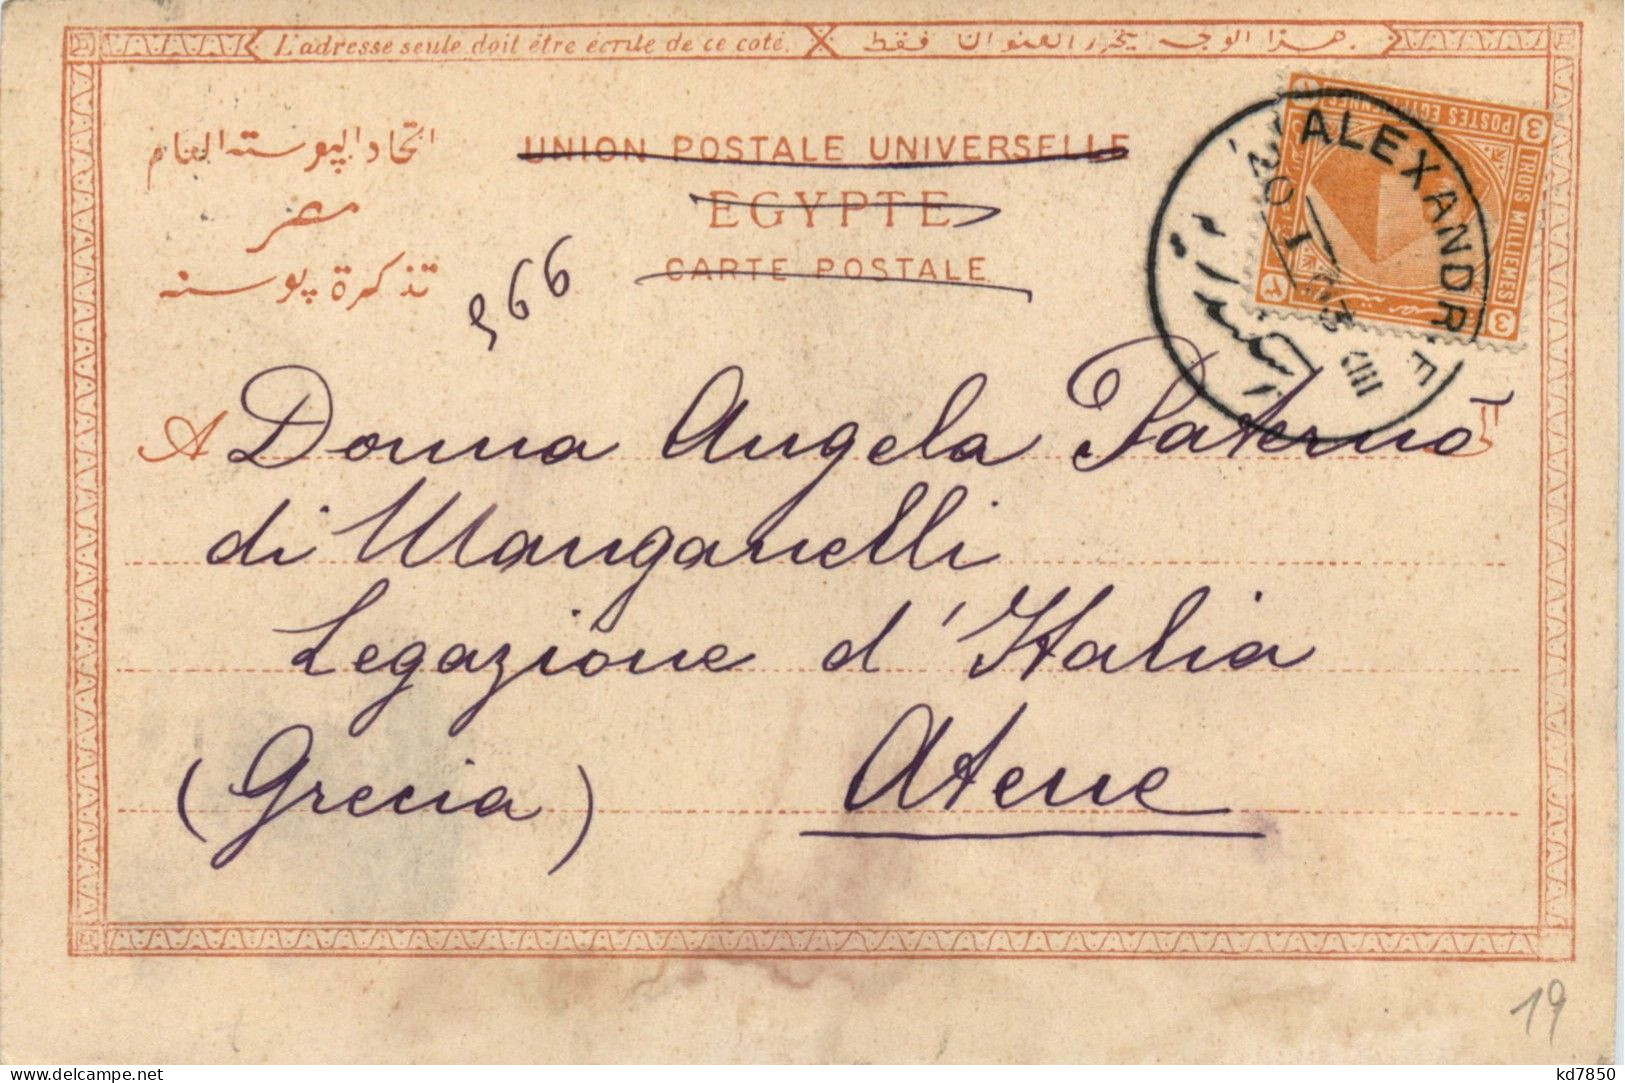 L'adresse seule doit être écrite de ce coté.
هذا الوجه يحرر العنوان فقط.
اتحاد البوسته العام
UNION POSTALE UNIVERSELLE
مصر
EGYPTE
تذكرة بوسته
CARTE POSTALE
966
POSTES EGYPTIENNES
TROIS MILLIEMES
3
3
ALEXANDRIE
20 I
III
A Donna Angela Paternò
di Manganelli
Legazione d'Italia
(Grecia) Atene
19
kd7850